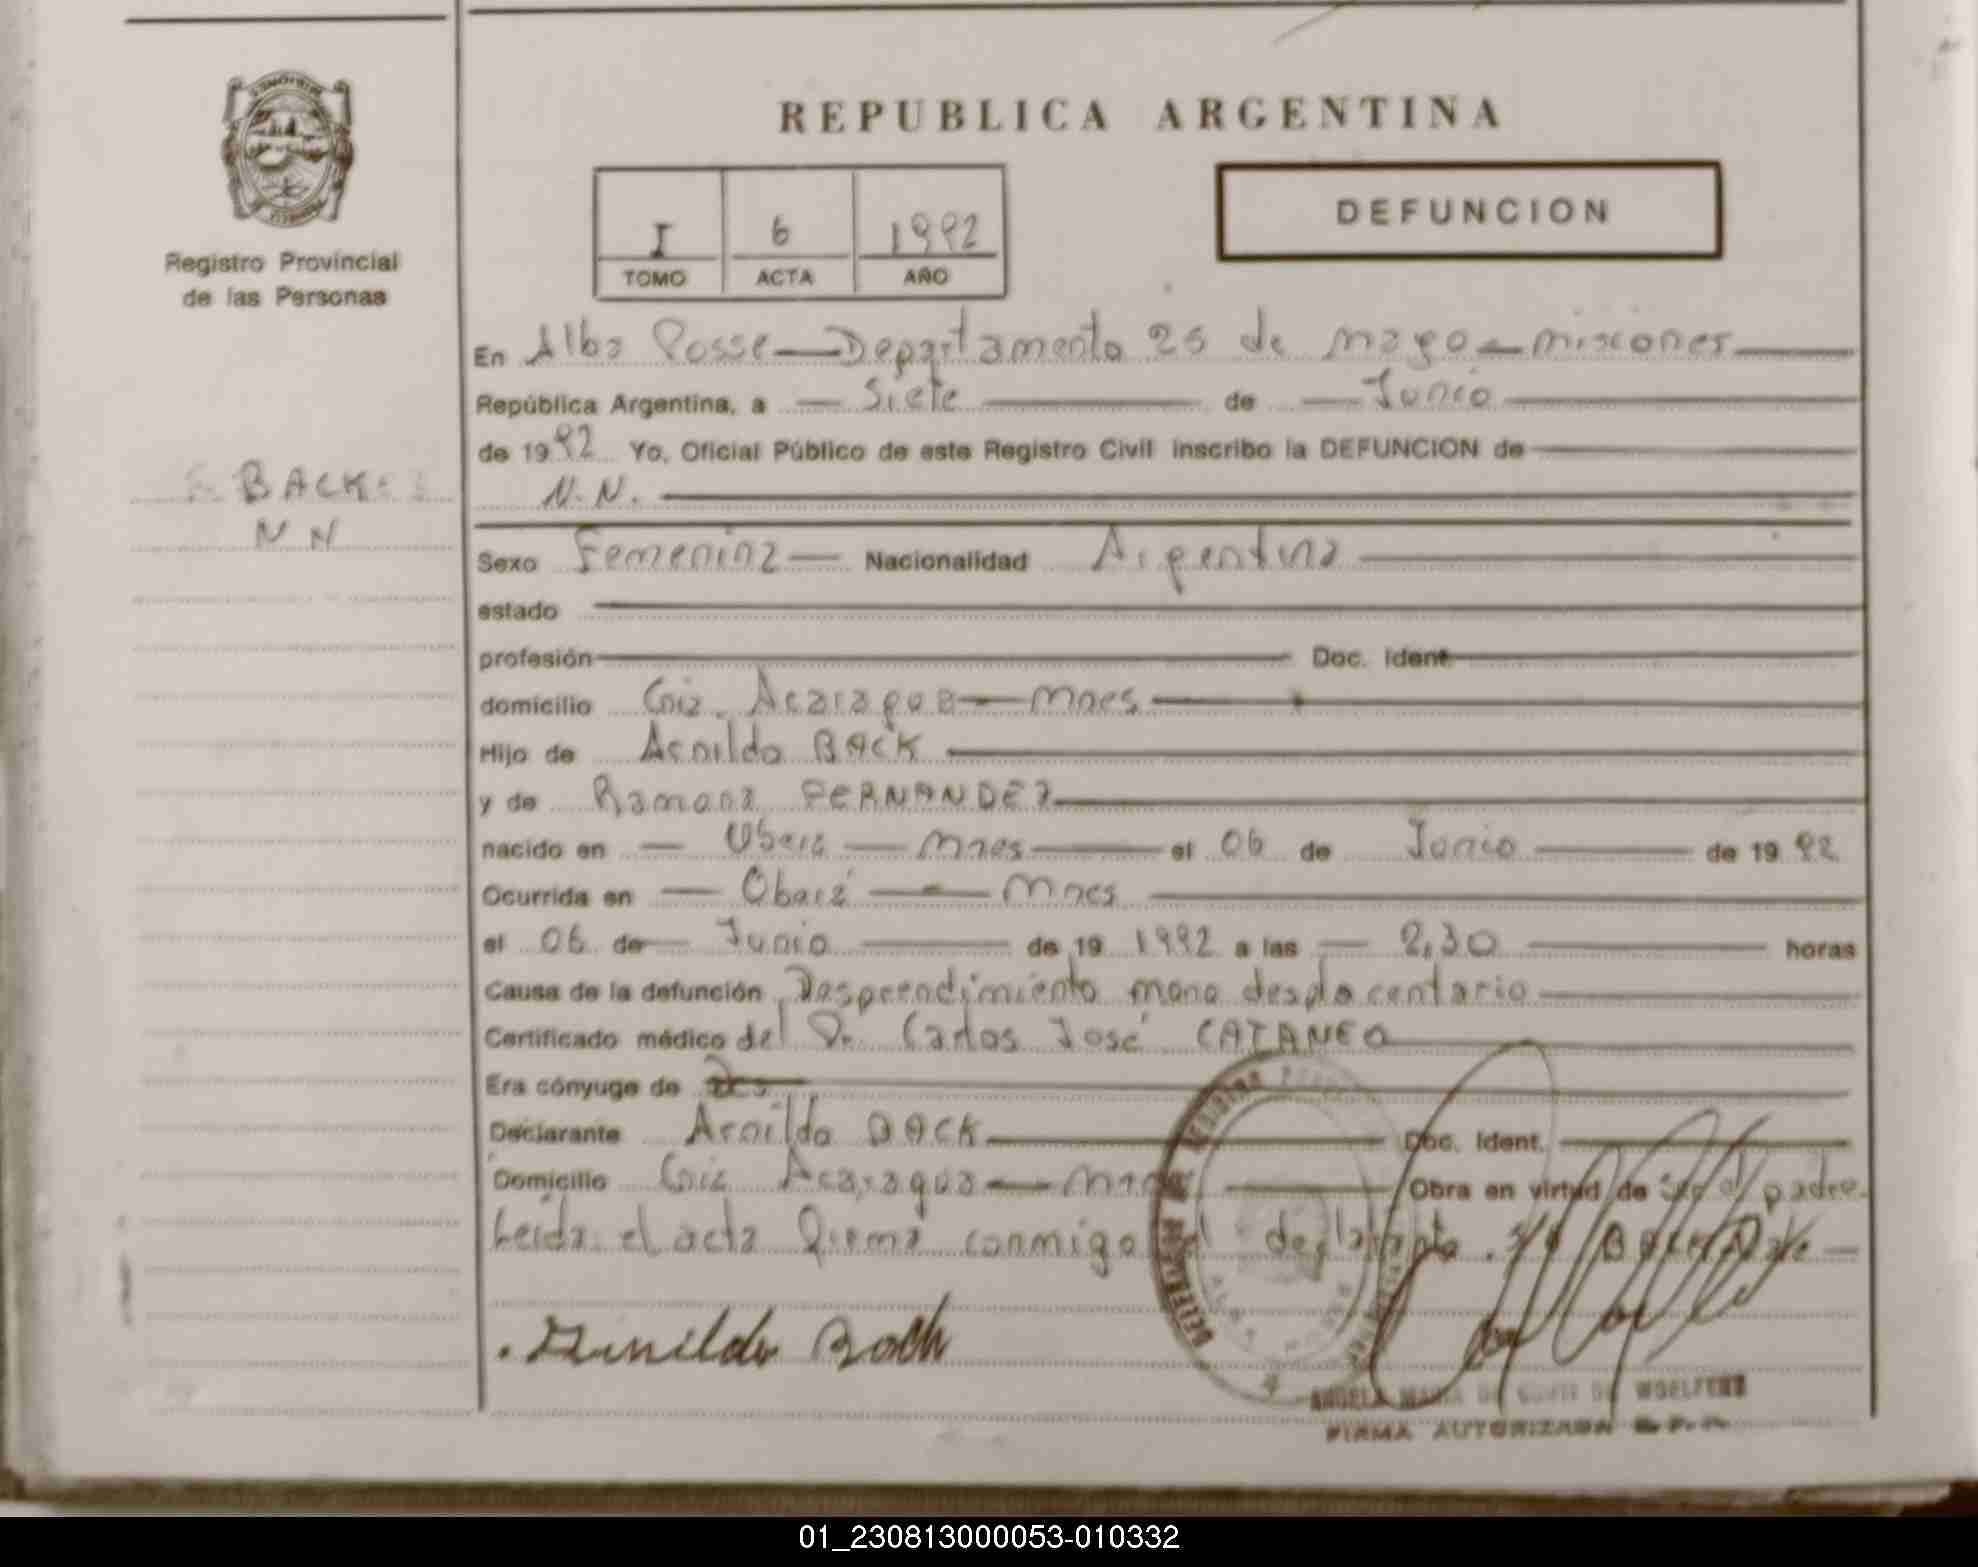 REPUBLICA ARGENTINA
DEFUNCION
I 6 1992
TOMO ACTA AÑO
Registro Provincial
de las Personas
BACK
N N
En Alba Posse — Departamento 25 de mayo — misiones
República Argentina, a — Siete — de — Junio
de 1992 Yo, Oficial Público de este Registro Civil inscribo la DEFUNCION de
N.N.
Sexo Femenina — Nacionalidad Argentina
estado
profesión Doc. Ident.
domicilio Acaragua — Mnes
Hijo de Arnildo BACK
y de Ramona FERNANDEZ
nacido en — Oberá — Mnes — el 06 de Junio — de 19 92
Ocurrida en — Oberá — Mnes
el 06 de — Junio — de 19 1992 a las — 2,30 — horas
Causa de la defunción Desprendimiento
Certificado médico del Dr. Carlos José CATANEO
Era cónyuge de
Declarante Arnildo BACK Doc. Ident.
Domicilio Acaragua — Obra en virtud de ser el padre.
Leída el acta firma conmigo el declarante.
FIRMA AUTORIZADA
01_230813000053-010332